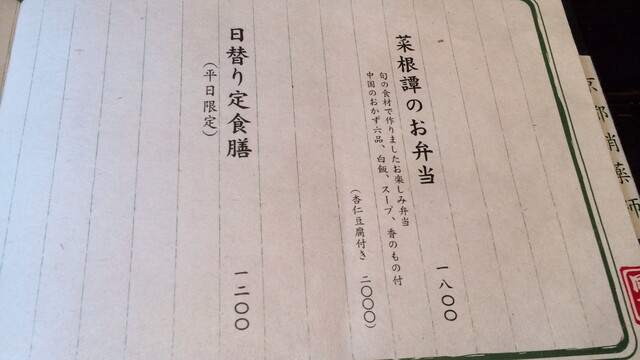 菜根譚のお弁当
旬の食材で作りましたお楽しみ弁当
中国のおかず六品、白飯、スープ、香のもの付
一八〇〇
(杏仁豆腐付き 二〇〇〇)
日替り定食膳
(平日限定)
一二〇〇
京都
薬師